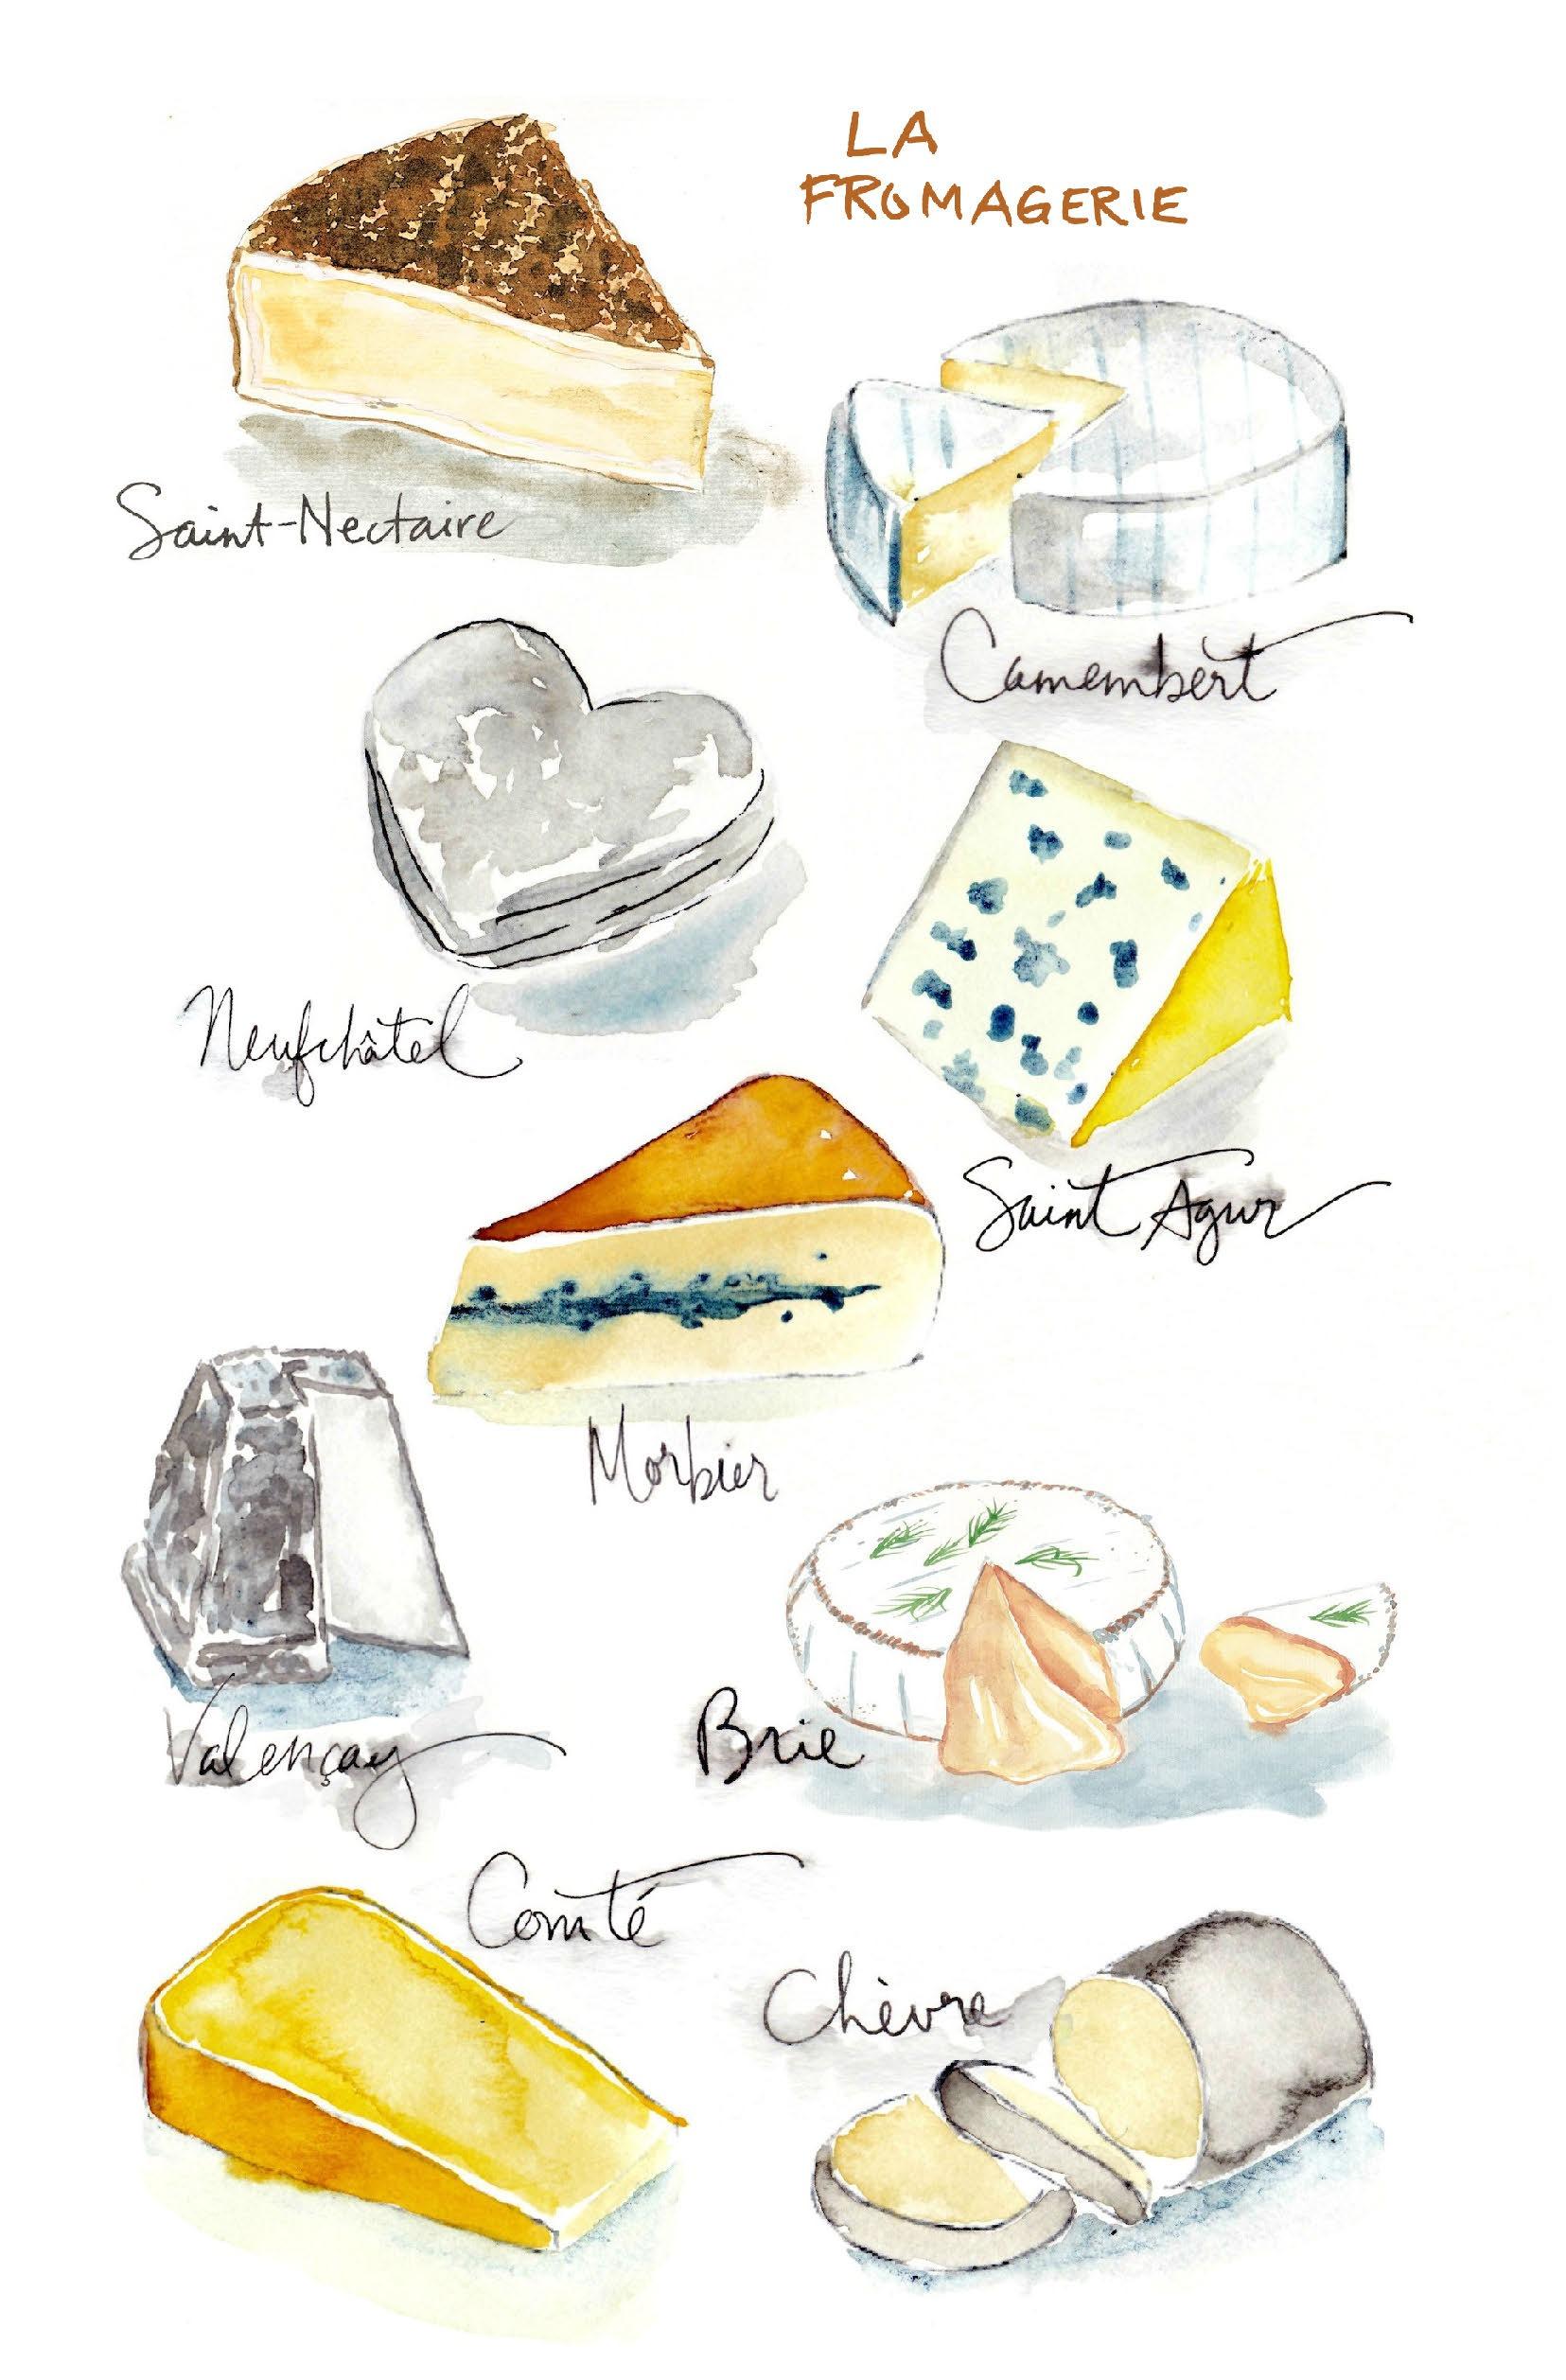 LA
FROMAGERIE
Saint-Nectaire
Camembert
Neufchâtel
Saint Agur
Morbier
Valençay
Brie
Comté
Chèvre